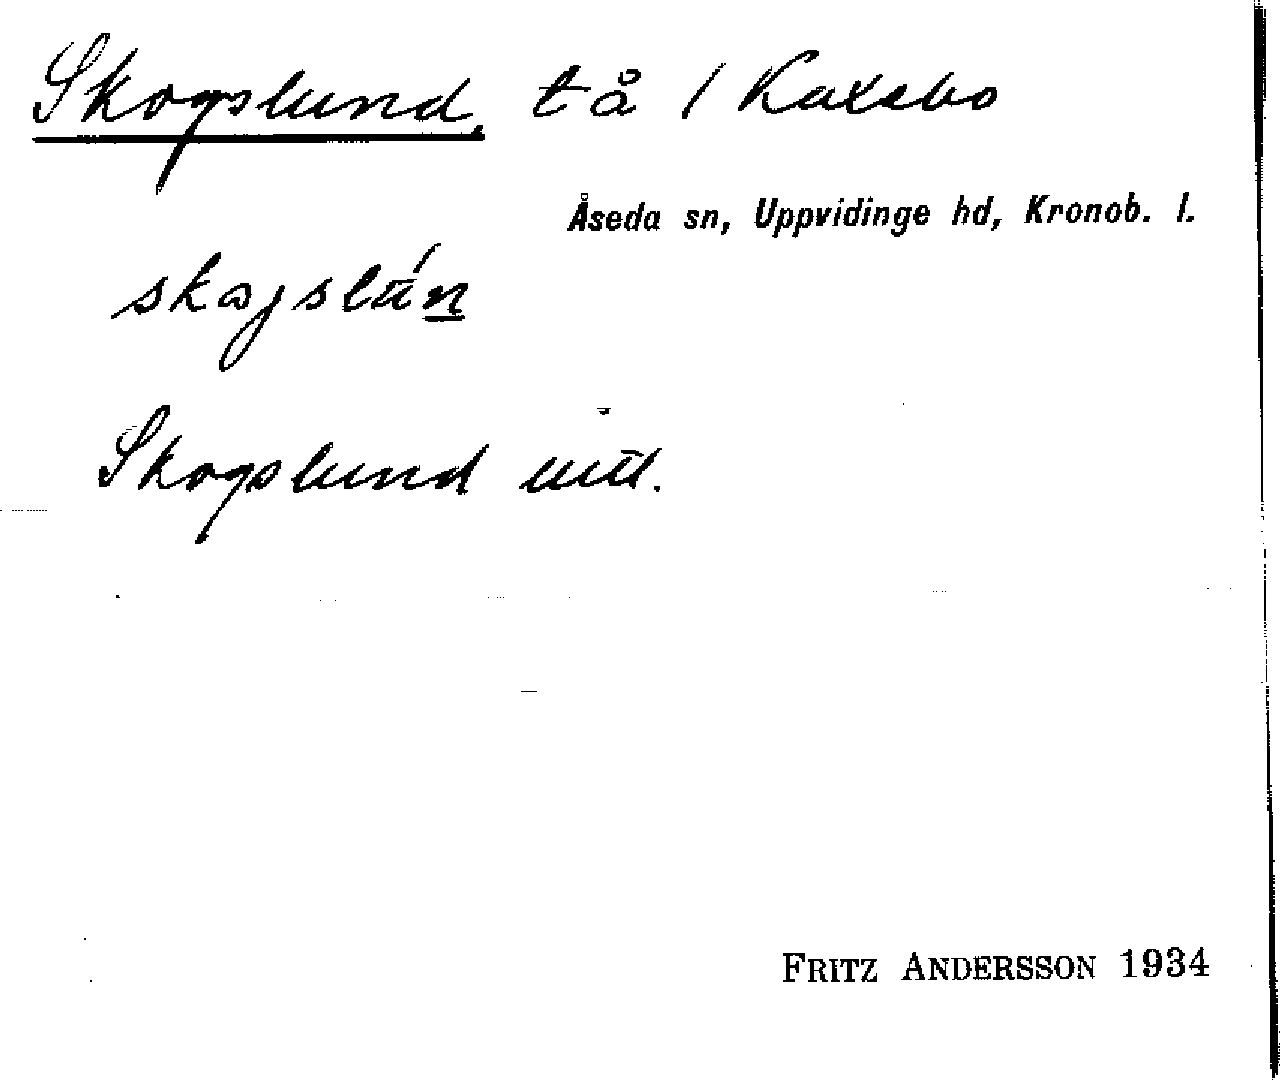 Skogslund, tå / Kaxebo
Åseda sn, Uppvidinge hd, Kronob. l.
skogslún
Skogslund
FRITZ ANDERSSON 1934